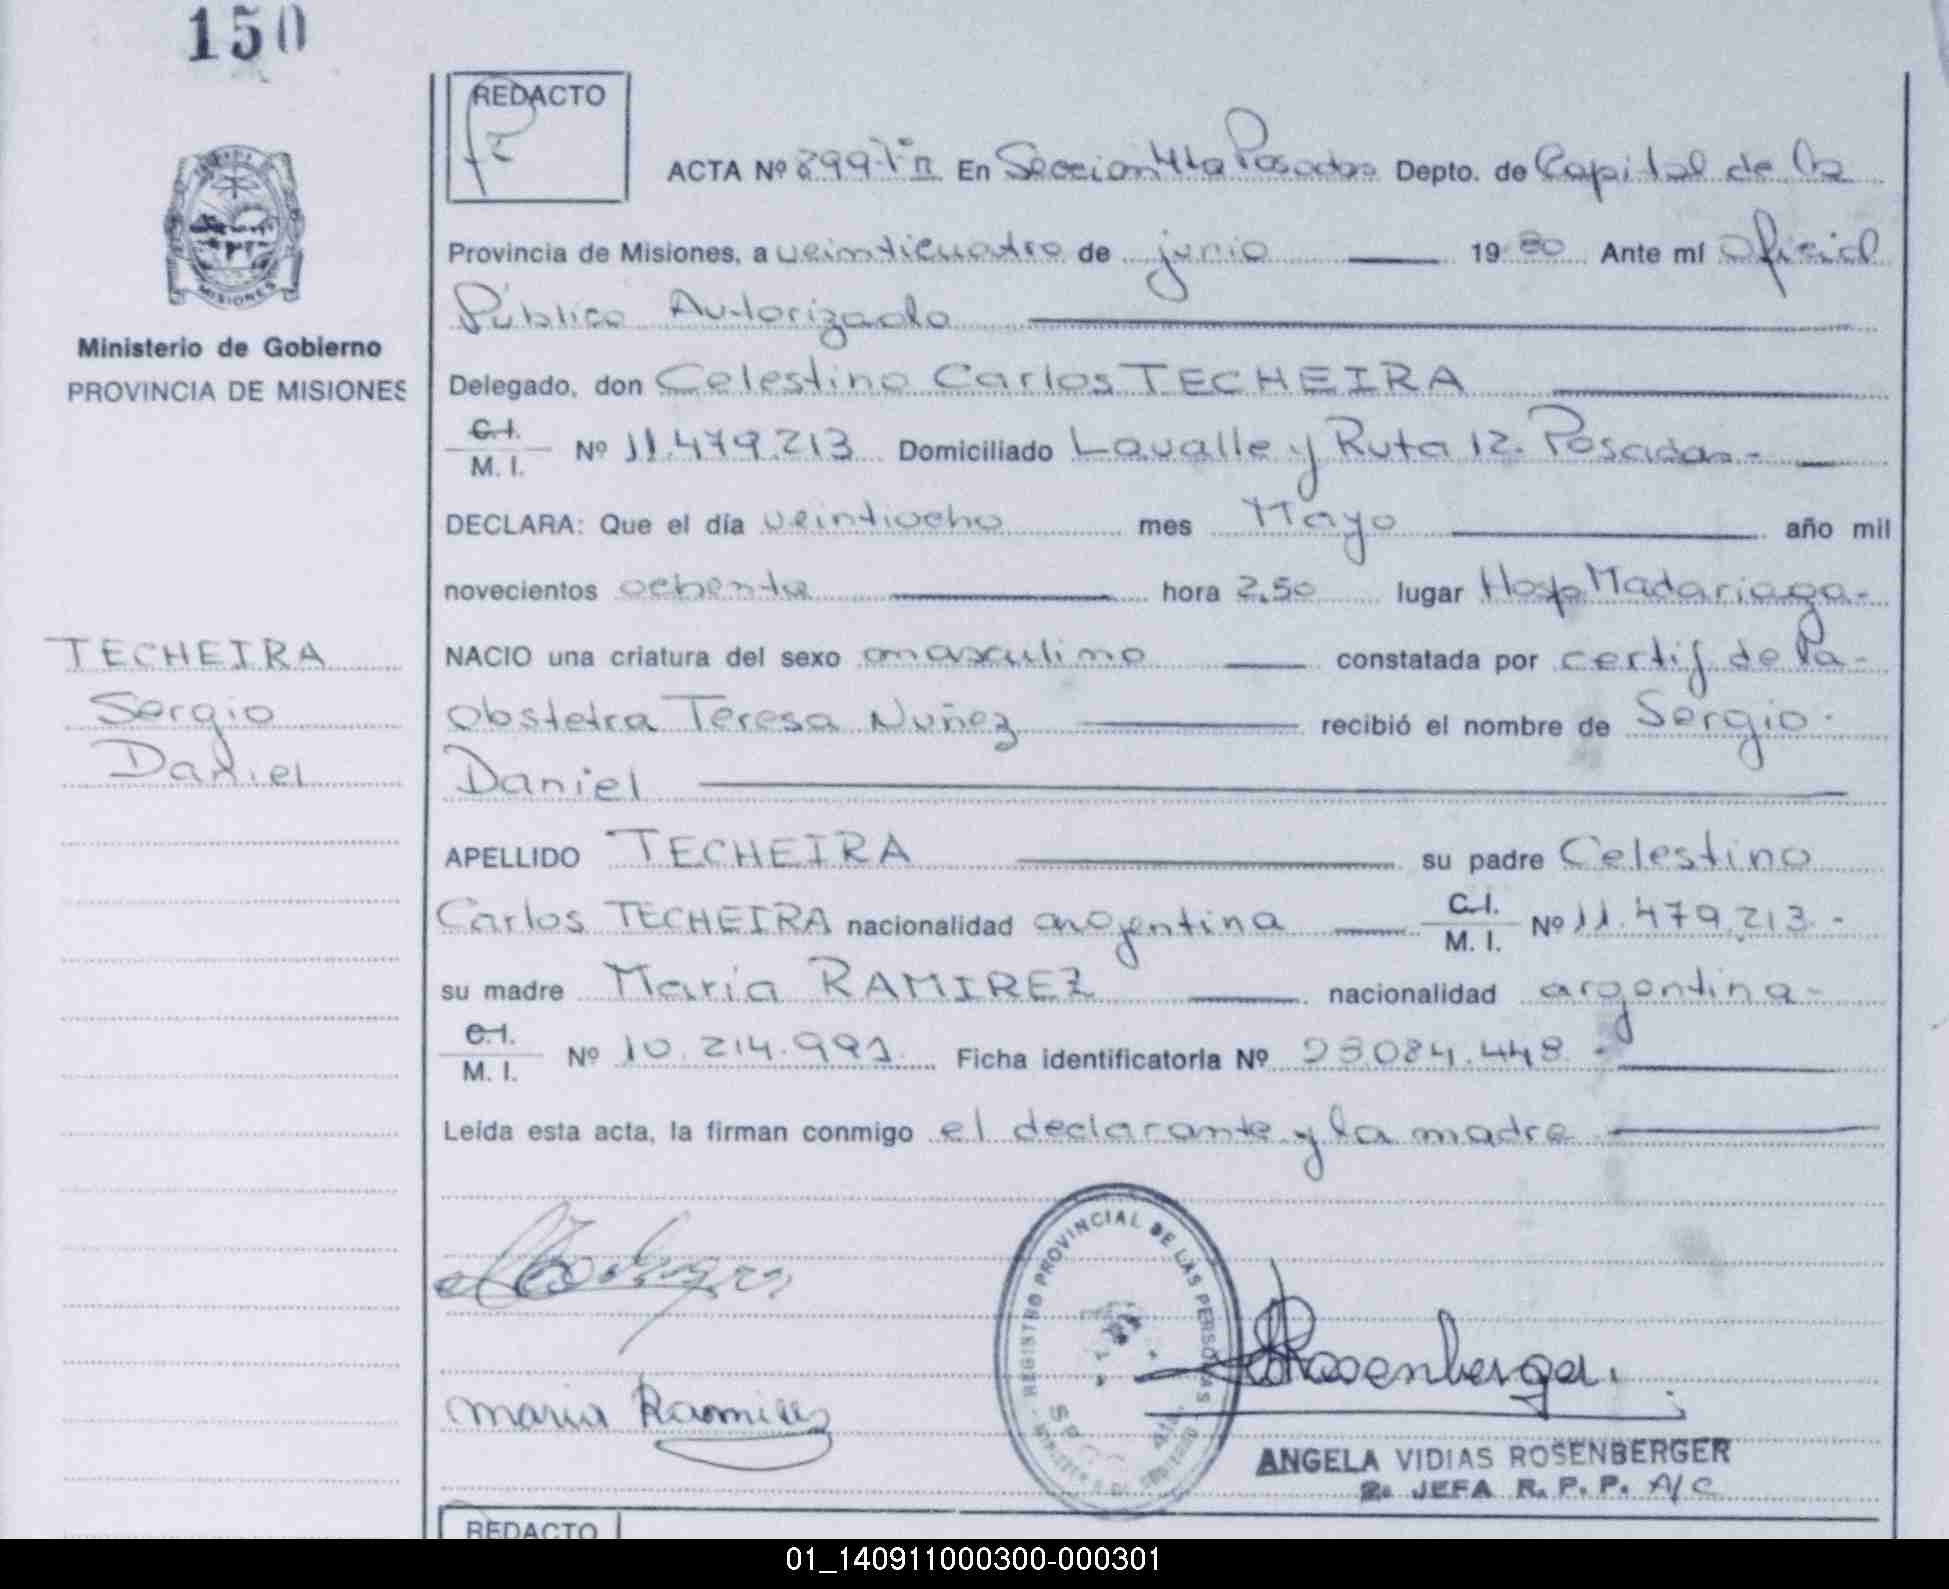 150
REDACTO
ACTA Nº 899 TºII En Seccion 4ta Posadas Depto. de Capital de la
MISIONES
Provincia de Misiones, a veinticuatro de junio 1980 Ante mí Oficial
Público Autorizado
Ministerio de Gobierno
PROVINCIA DE MISIONES
Delegado, don Celestino Carlos TECHEIRA
C.I.
M. I. Nº 11.479.213 Domiciliado Lavalle y Ruta 12. Posadas-
DECLARA: Que el día veintiocho mes Mayo año mil
novecientos ochenta hora 2.50 lugar Hosp Madariaga-
TECHEIRA
Sergio
Daniel
NACIO una criatura del sexo masculino constatada por certif de la-
obstetra Teresa Nuñez recibió el nombre de Sergio-
Daniel
APELLIDO TECHEIRA su padre Celestino
Carlos TECHEIRA nacionalidad argentina C.I.
M. I. Nº 11.479.213-
su madre Maria RAMIREZ nacionalidad argentina-
C.I.
M. I. Nº 10.214.991 Ficha identificatoria Nº 28.084.448.-
Leída esta acta, la firman conmigo el declarante y la madre
REGISTRO PROVINCIAL DE LAS PERSONAS
Rosenberger.
maria Ramirez
ANGELA VIDIAS ROSENBERGER
2a JEFA R. P. P. A/C
REDACTO
01_140911000300-000301